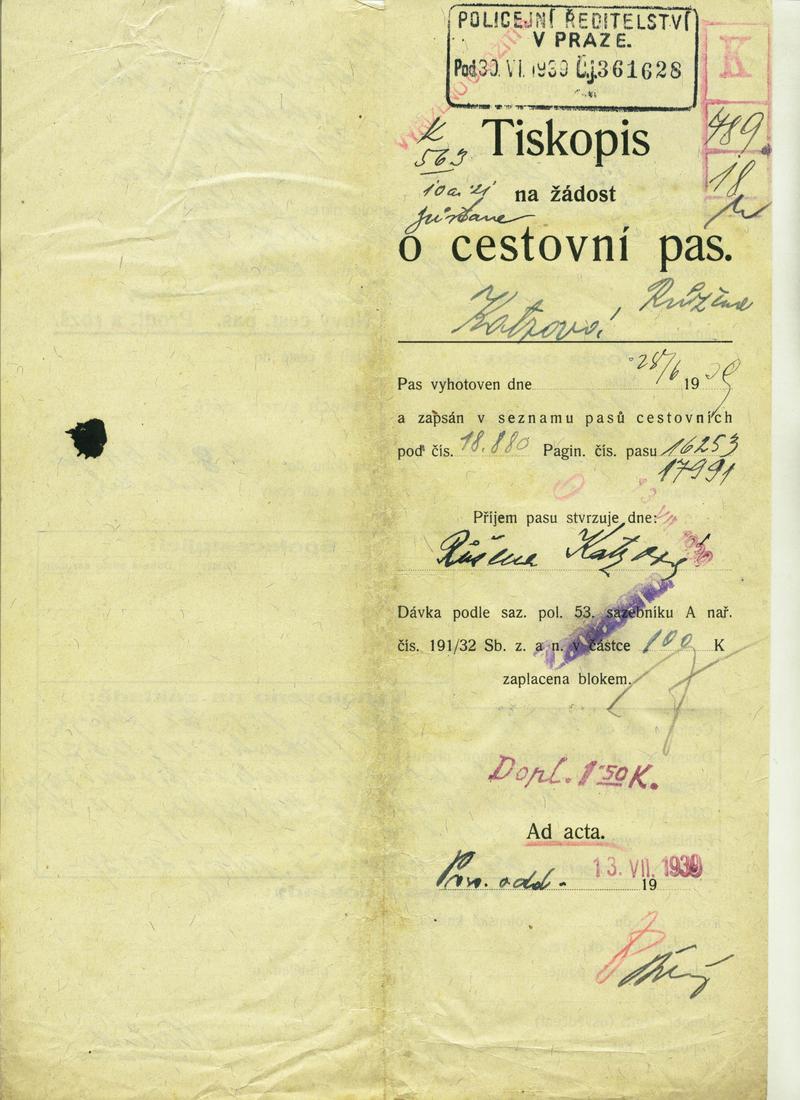 POLICEJNÍ ŘEDITELSTVÍ
V PRAZE.
Pod 30. VI. 1939 Čj. 361628
K
K
563
789
18
Tiskopis
na žádost
o cestovní pas.
Katzová Růžena
Pas vyhotoven dne 28/6 1939
a zapsán v seznamu pasů cestovních
pod čís. 18.880 Pagin. čís. pasu 16253
17991
Příjem pasu stvrzuje dne: 13 VII. 1939
Růžena Katzová
Dávka podle saz. pol. 53. sazebníku A nař.
čís. 191/32 Sb. z. a n. v částce 100 K
zaplacena blokem.
Dopl. 1·50 K.
Ad acta.
odd. 13. VII. 1939
19